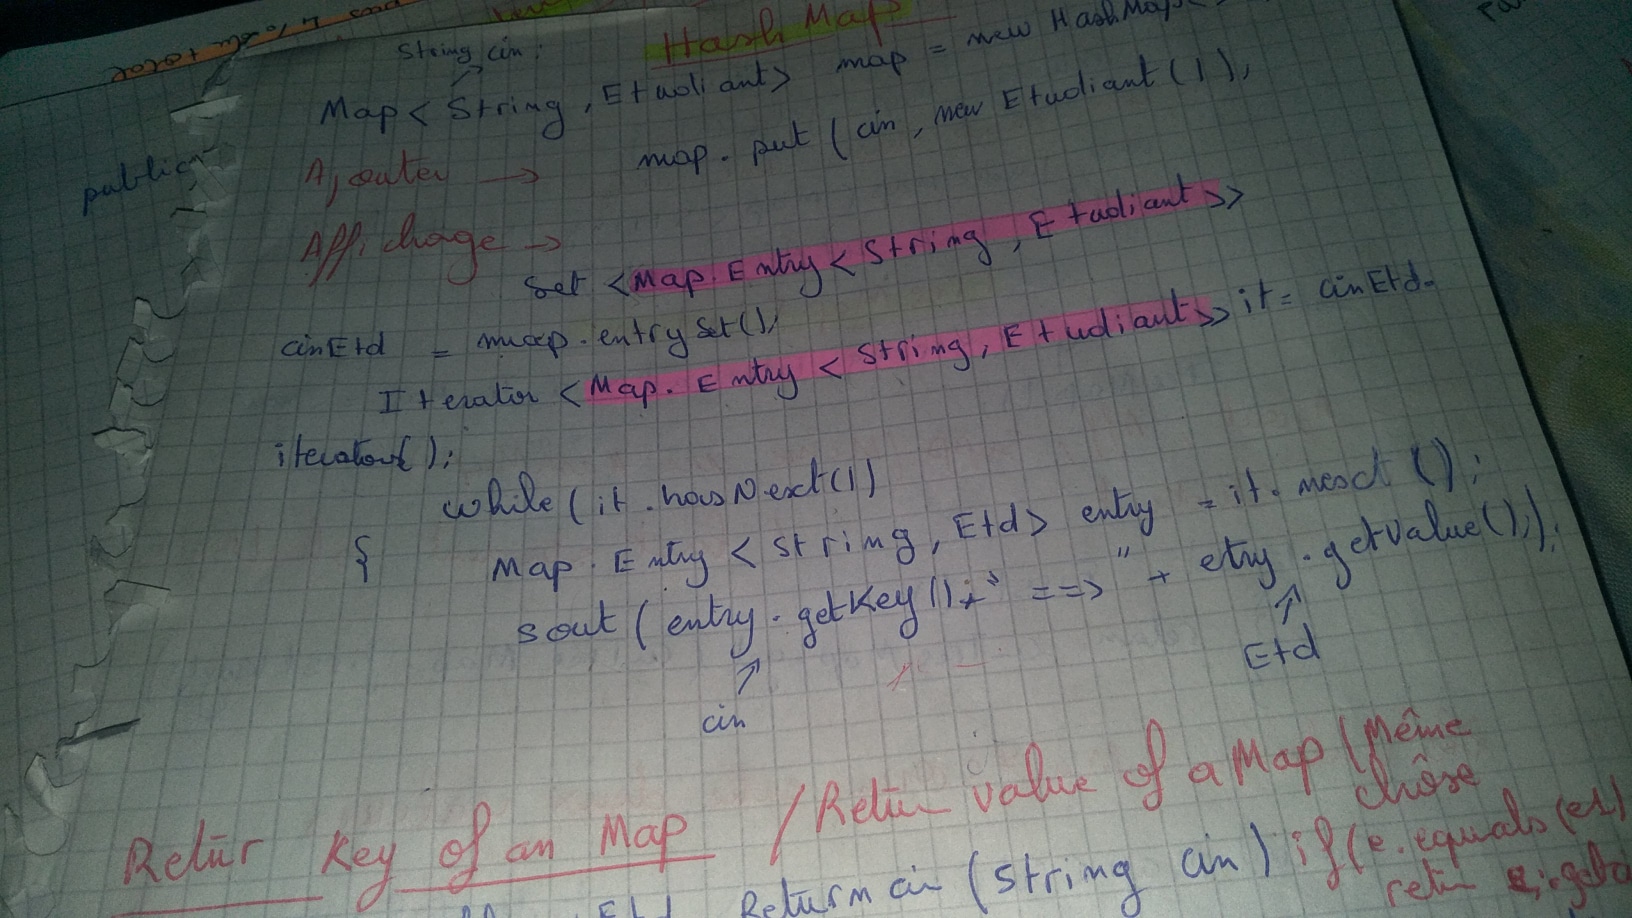 Hash Map
String cin;
Map < String , Etudiant> map = new HashMap<
public
Ajouter → map. put ( cin , new Etudiant (1),
Affichage →
Set <Map. Entry < String , Etudiant >>
cinEtd = map.entry Set(),
Iterator <Map. Entry < String, Etudiant>> it = cinEtd.
iterator( );
while ( it .hasNext(1)
{ Map. Entry < String , Etd> entry = it. next ();
sout ( entry. getKey () + " ==> " + etry .getvalue(),);
cin Etd
Retur Key of an Map / Retur value of a Map ( Même
chôse
Return cin (String cin) if(e.equals(es)
retur